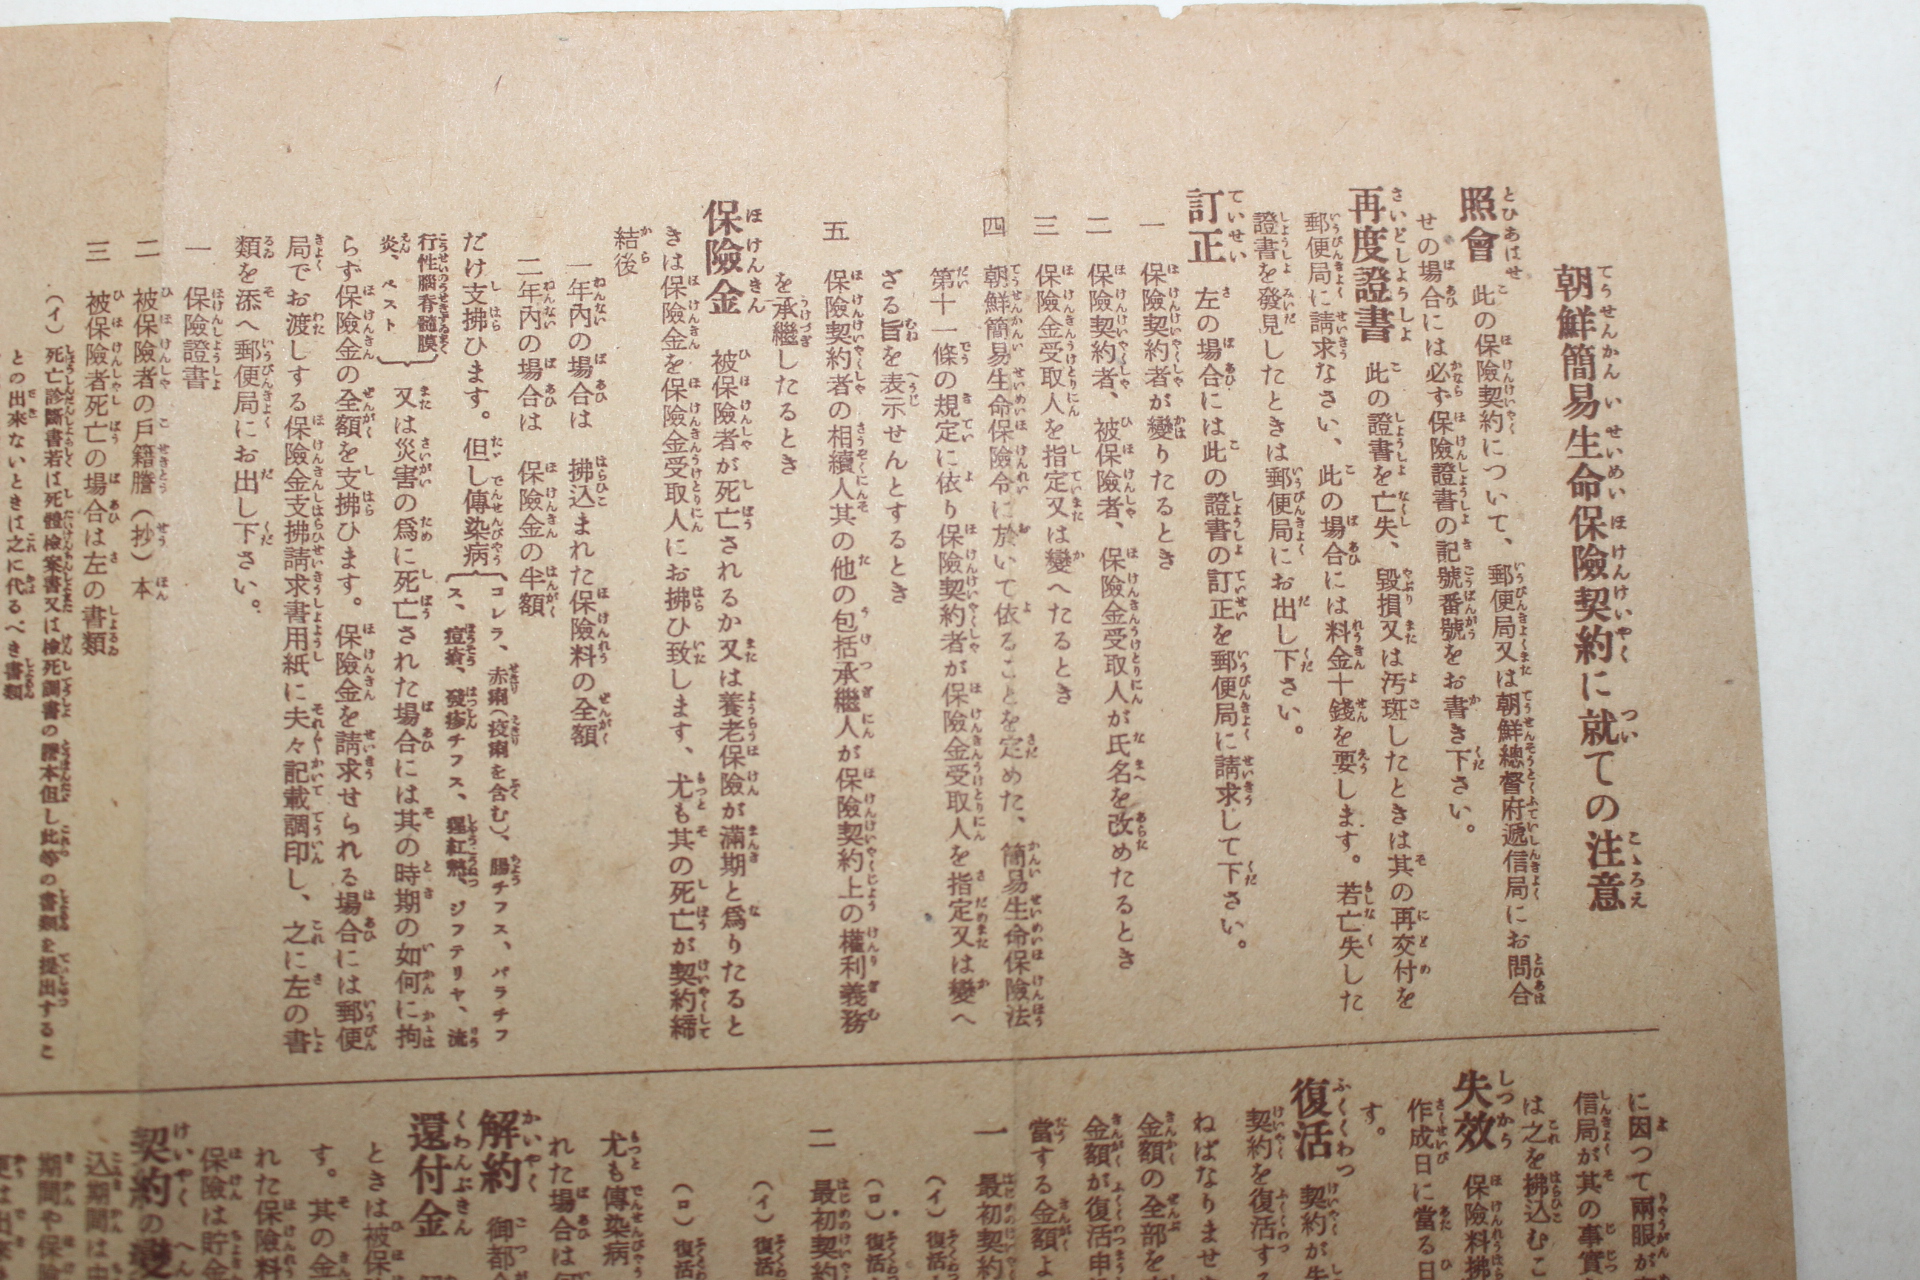 朝鮮簡易生命保險契約に就ての注意
照會 此の保險契約について、郵便局又は朝鮮總督府遞信局にお問合
せの場合には必ず保險證書の記號番號をお書き下さい。
再度證書 此の證書を亡失、毀損又は汚斑したときは其の再交付を
郵便局に請求なさい、此の場合には料金十錢を要します。若亡失した
證書を發見したときは郵便局にお出し下さい。
訂正 左の場合には此の證書の訂正を郵便局に請求して下さい。
一 保險契約者が變りたるとき
二 保險契約者、被保險者、保險金受取人が氏名を改めたるとき
三 保險金受取人を指定又は變へたるとき
四 朝鮮簡易生命保險令に於いて依ることを定めた、簡易生命保險法
第十一條の規定に依り保險契約者が保險金受取人を指定又は變へ
ざる旨を表示せんとするとき
五 保險契約者の相續人其の他の包括承繼人が保險契約上の權利義務
を承繼したるとき
保險金 被保險者が死亡されるか又は養老保險が滿期と爲りたると
きは保險金を保險金受取人にお拂ひ致します、尤も其の死亡が契約締
結後
一年內の場合は 拂込まれた保險料の全額
二年內の場合は 保險金の半額
だけ支拂ひます。但し傳染病{コレラ、赤痢(疫痢を含む)、腸チフス、パラチフ
ス、痘瘡、發疹チフス、猩紅熱、ジフテリヤ、流
行性腦脊髓膜
炎、ペスト}又は災害の爲に死亡された場合には其の時期の如何に拘
らず保險金の全額を支拂ひます。保險金を請求せられる場合には郵便
局でお渡しする保險金支拂請求書用紙に夫々記載調印し、之に左の書
類を添へ郵便局にお出し下さい。
一 保險證書
二 被保險者の戶籍謄(抄)本
三 被保險者死亡の場合は左の書類
(イ) 死亡診斷書若は死體檢案書又は檢死調書の謄本但し此等の書類を提出するこ
との出來ないときは之に代るべき書類
に因つて兩眼が
信局が其の事實
は之を拂込むこ
失效 保險料拂
作成日に當る日
す。
復活 契約が失
契約を復活す
ねばなりませ
金額の全部を
金額が復活申
當する金額よ
一 最初契約
(イ) 復活
(ロ) 復活
二 最初契約
(イ) 復活
(ロ) 復活
尤も傳染病
れた場合は
解約 御都合
還付金
ときは被保
す。其の金
れた保險料
保險は貯金
契約の變
込期間は
期間や保險
更は出來